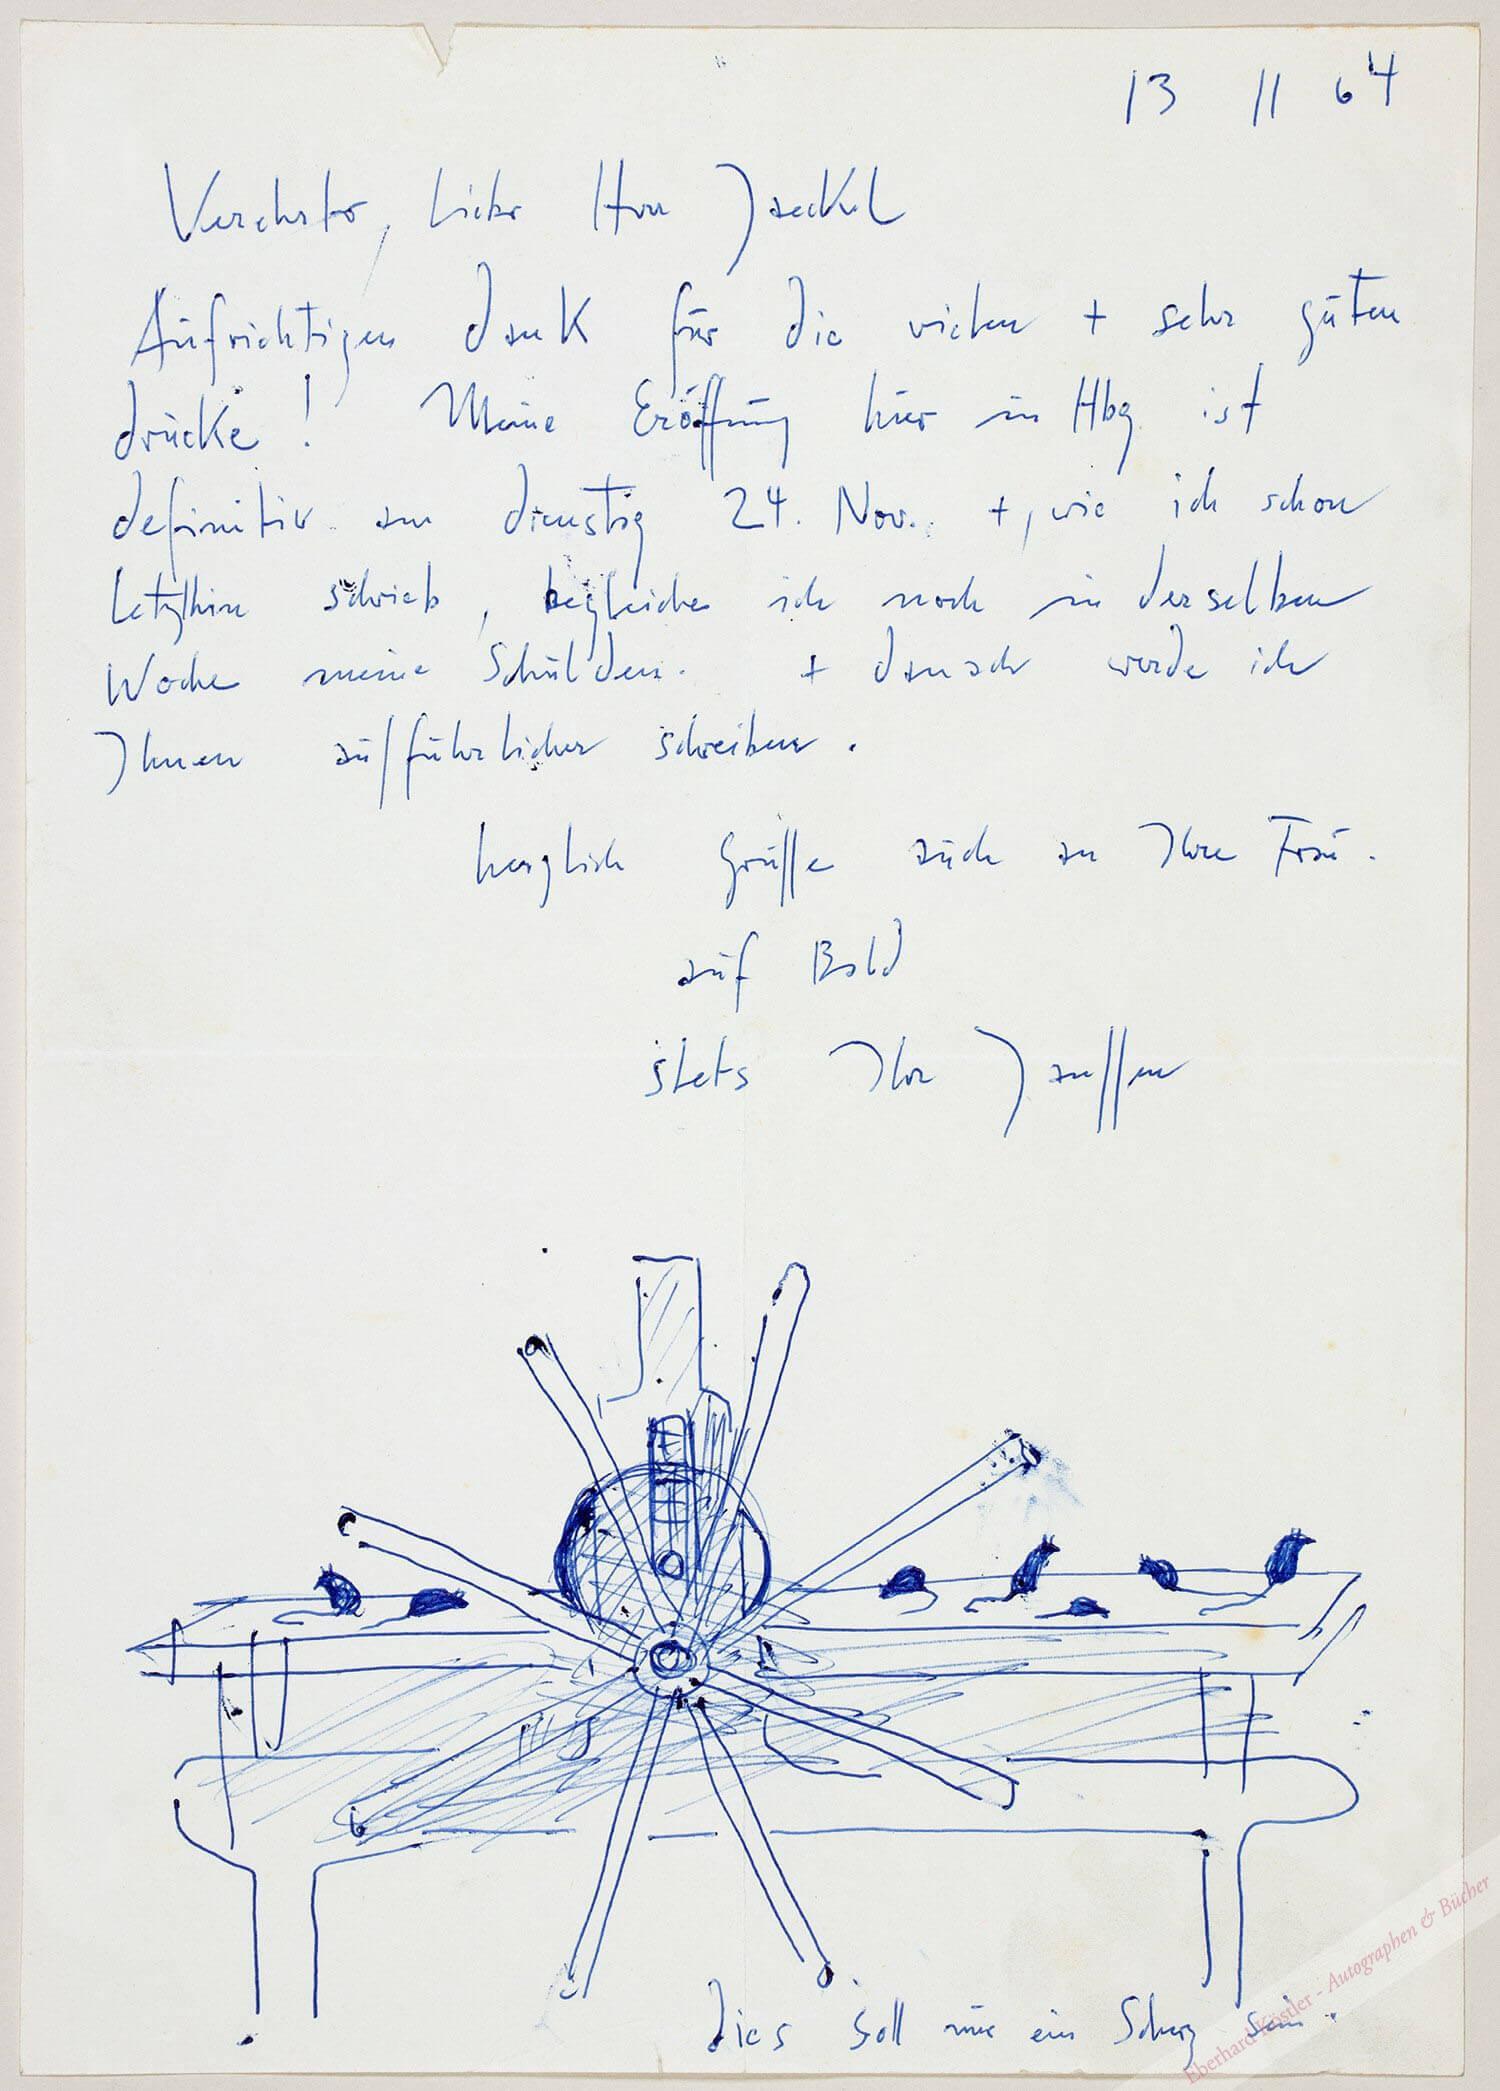 13 11 64
Verehrter, lieber Herr Jaeckel
Aufrichtigen dank für die vielen + sehr guten
drucke! Meine Eröffnung hier in Hbg. ist
definitiv am dienstag 24. Nov. +, wie ich schon
letzthin schrieb, begleiche ich noch in derselben
Woche meine Schulden. + danach werde ich
Ihnen ausführlicher schreiben.
herzlich Grüsse auch an Ihre Frau.
auf Bald
stets Ihr Janssen
dies soll nur ein Scherz sein.
Eberhard Köstler - Autographen & Bücher